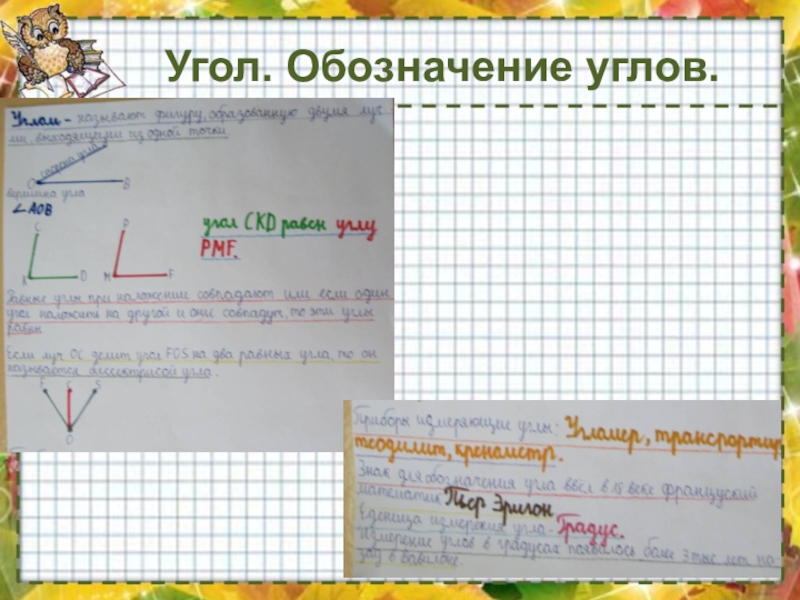 Угол. Обозначение углов.
Углом - называют фигуру, образованную двумя луч
ми, выходящими из одной точки.
сторона угла
О В
вершина угла
∠АОВ
С Р
К D М F
угол CKD равен углу
PMF.
Равные углы при наложении совпадают или если один
угол наложить на другой и они совпадут, то эти углы
равны
Если луч ОС делит угол FOS на два равных угла, то он
называется биссектрисой угла.
F С S
О
Приборы измеряющие углы: Угломер, транспортир
теодилит, кренометр.
Знак для обозначения угла ввёл в веке французский
математик Пьер Эригон
Еденица измерения угла - Градус.
Измерение углов в градусах появилось более 3 тыс. лет на
зад в Вавилоне.